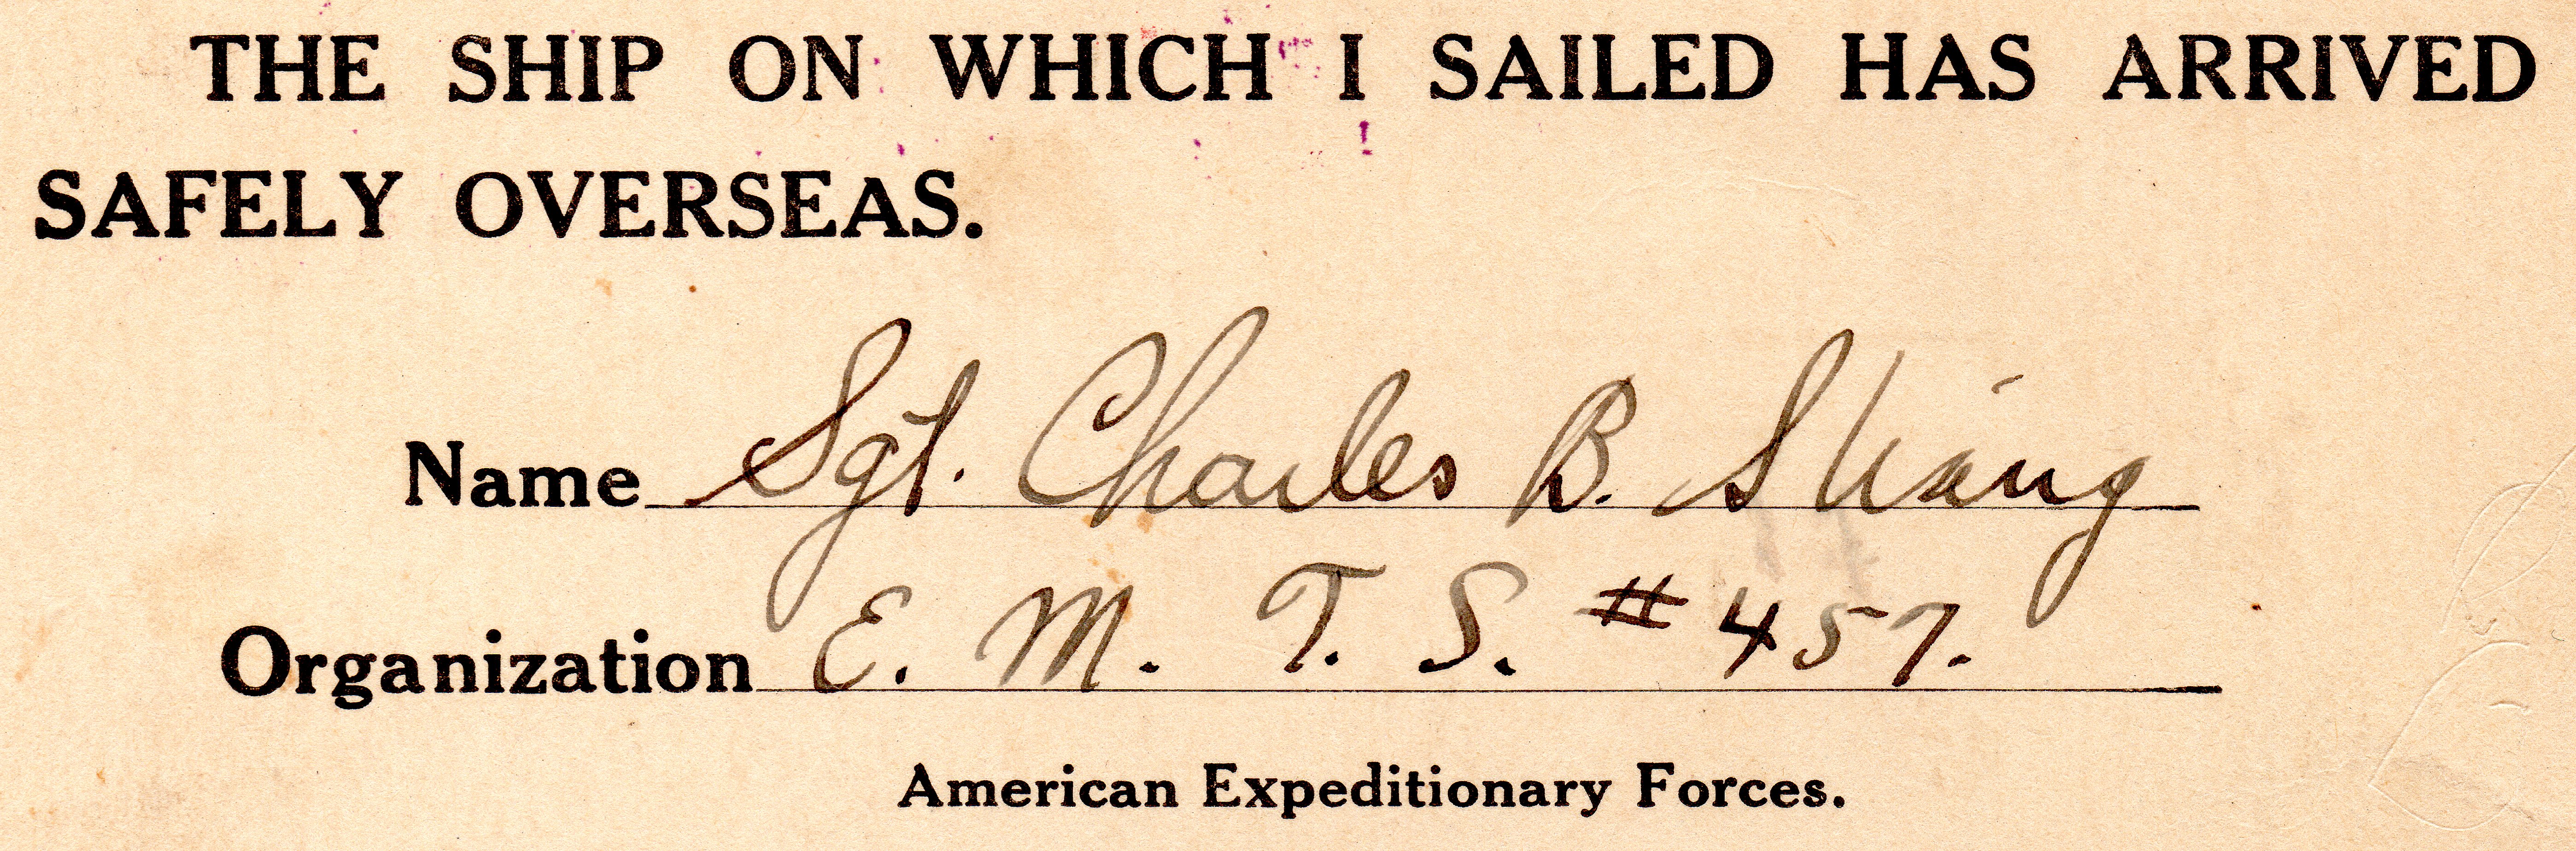 THE SHIP ON WHICH I SAILED HAS ARRIVED
SAFELY OVERSEAS.
Name Sgt. Charles B. Strang
Organization E. M. T. S. # 457.
American Expeditionary Forces.